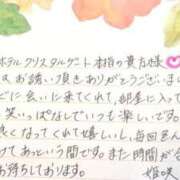 ホテルクリスタルゲート 本指の貴方様
お誘い頂きありがとうございま
に会いに来てくれて、部屋に入って
笑いっぱなしでいつも楽しいです。
良くなってくれて嬉しいし、毎回
てあっという間です。また時間が合
お待ちしております。
姫咲